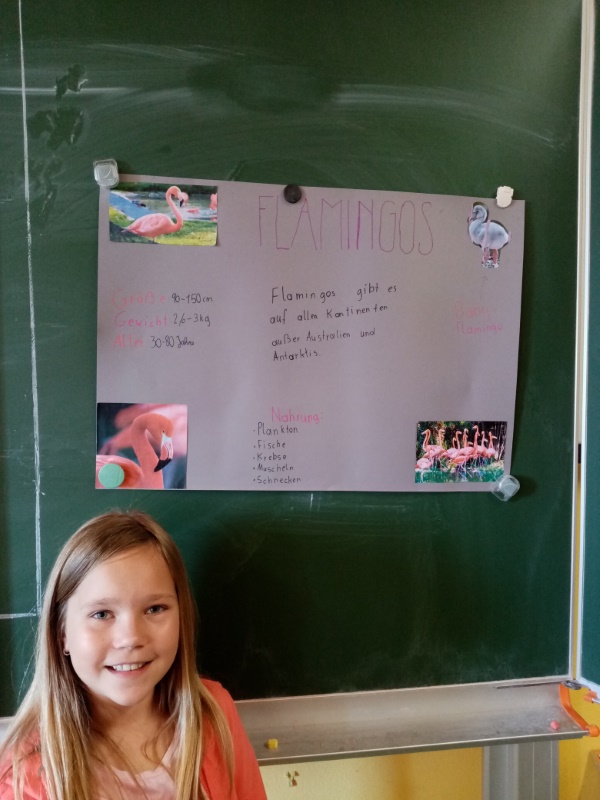 FLAMINGOS
Größe 90-150cm
Gewicht 2,6-3kg
Alter 30-80 Jahre
Flamingos gibt es
auf allen Kontinenten
außer Australien und
Antarktis.
Baby-
flamingo
Nahrung
• Plankton
• Fische
• Krebse
• Muscheln
• Schnecken